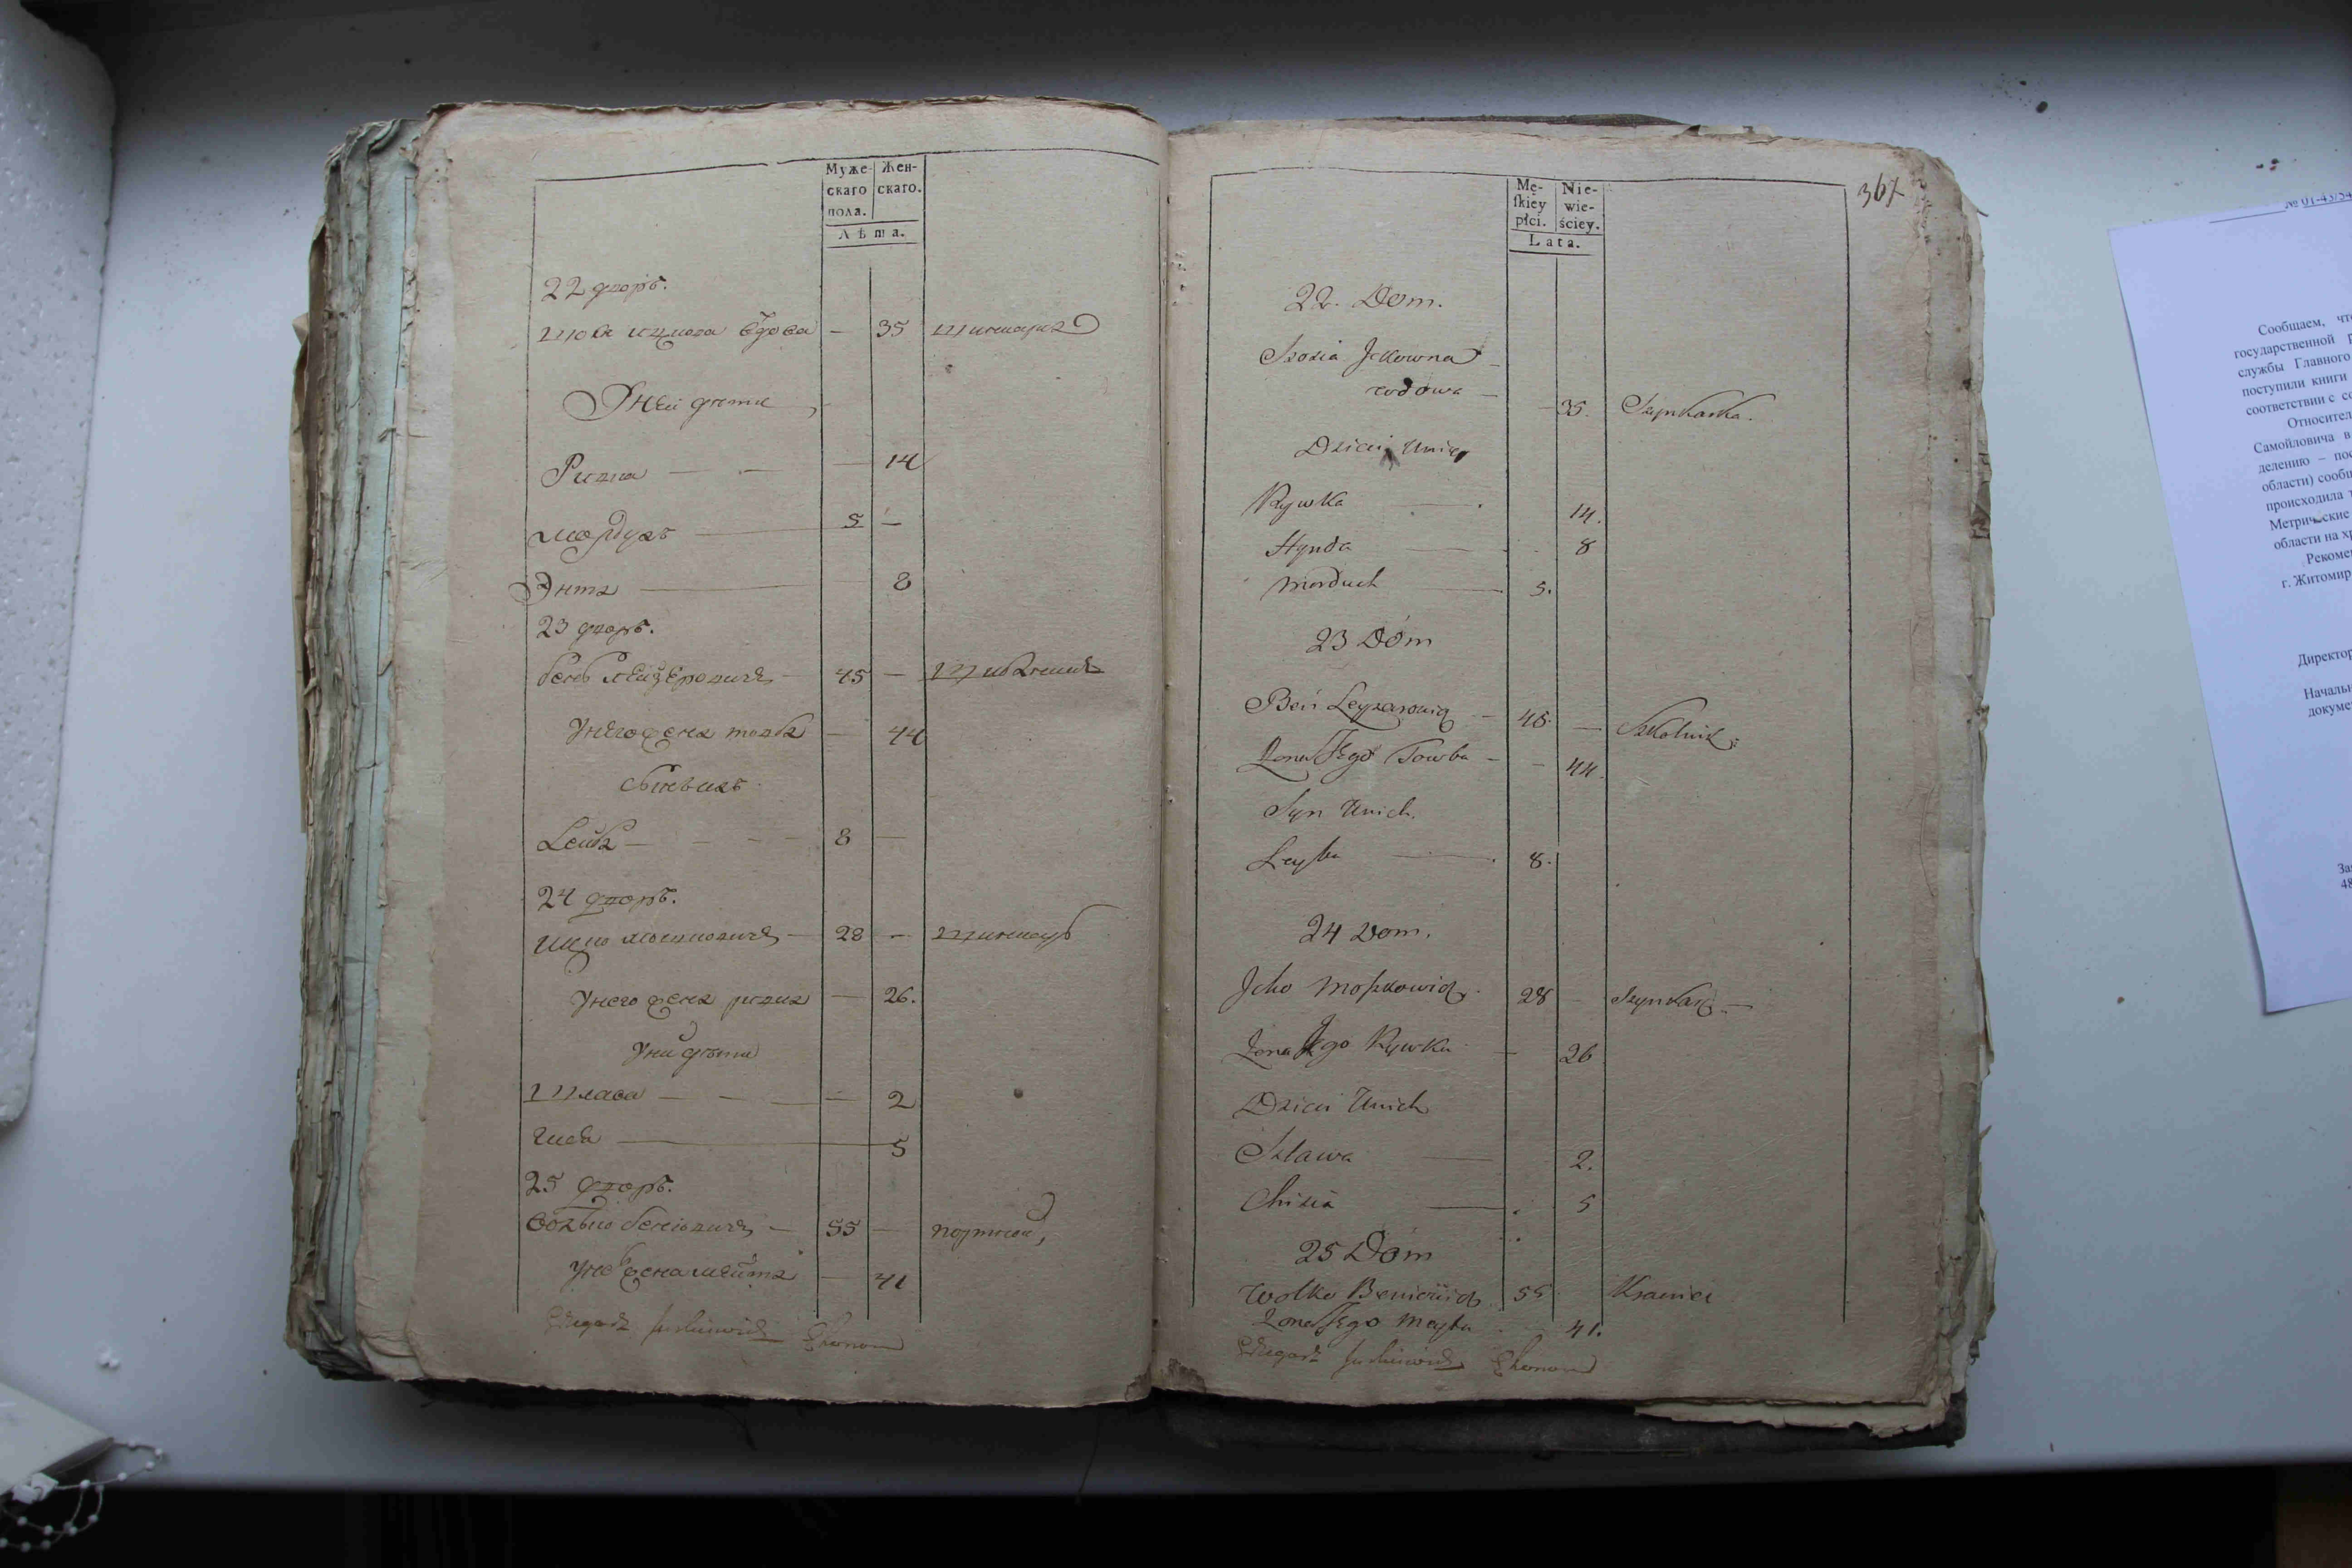 Муже-
скаго
пола.
Жен-
скаго.
Лѣта.
22 дворъ.
вдова — 35
У ней дѣти
Ривка — — — 14
Мордухъ — 5 —
Энта — 8
23 дворъ.
Бень Лейзеровичъ — 45 —
У него жена Товба — 44
Сынъ ихъ
Лейба — 8 —
24 дворъ.
Ицко Мошковичъ — 28 — шинкаръ
У него жена Ривка — 26.
У ни дѣти
Шлава — — — 2
Хися — 5
25 дворъ.
Волько Беніовичъ — 55 — портной,
У не жена Мейта — 41
Ekonom
367
Mę-
ſkiey
płci.
Nie-
wie-
ściey.
Lata.
22. Dom.
Szosia Jckowna —
wdowa — — 35. Szynkarka.
Dzieci Unię
Rywka — 14.
Hynda — 8
Morduch — 5.
23 Dóm
Beń Leyzarowicz — 45. — Szkolnik
Zona Jego Towba — — 44.
Syn Unich.
Leyba — 8.
24 Dom.
Jcko Moszkowicz. 28 — Szynkarz —
Zona Jego Rywka — 26
Dzieci Unich
Szlawa — 2.
Chisia — 5
25 Dóm
Wolko Beniowicz 55 Krawiec
Zona Jego Meyta 41.
Ekonom
№ 01-43/54
Сообщаем, что
государственной
службы Главного
поступили книги
соответствии с
Относител
Самойловича в
делению – пос
области) сообщ
происходила
Метрические
области на хр
Рекоме
г. Житомир
Директор
Начальн
докумен
За
48